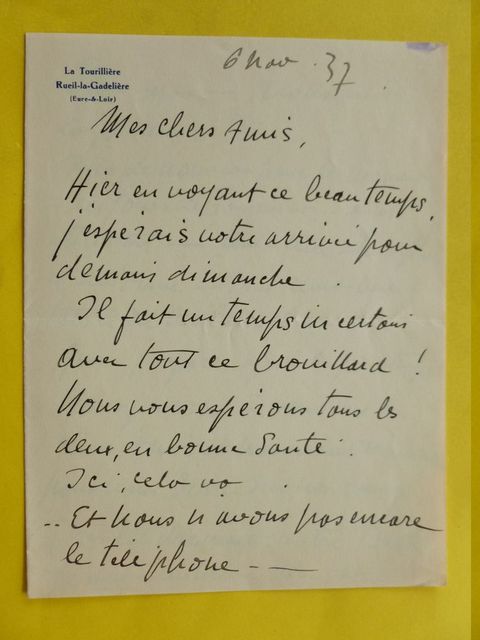 La Tourillière
Rueil-la-Gadelière
(Eure-&-Loir)
6 Nov. 37.
Mes chers Amis,
Hier en voyant ce beau temps,
j'espérais votre arrivée pour
demain dimanche.
Il fait un temps incertain
avec tout ce brouillard !
Nous vous espérons tous les
deux, en bonne Santé.
Ici, cela va.
.. Et nous n'avons pas encore
le téléphone - —